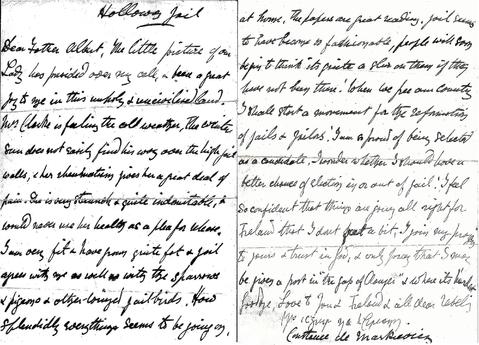 Holloway Jail
Dear Father Albert, The little picture of our
Lady has presided over my cell, & been a great
joy to me in this unholy & uncivilised land.
Mrs Clarke is feeling the cold weather, this winter
sun does not easily find his way over the high jail
walls, & her rheumatism gives her a great deal of
pain. She is very staunch & quite indomitable, &
would never use her health as a plea for release.
I am very fit & have grown quite fat & jail
agrees with me as well as with the sparrows
& pigeons & other winged jailbirds. How
splendidly everything seems to be going on,
at home. The papers are great reading. Jail seems
to have become so fashionable, people will soon
begin to think its quite a slur on them if they
have not been there. When we free our country
I shall start a movement for the reformation
of jails & jailors. I am so proud of being selected
as a candidate. I wonder whether I should have a
better chance of election in or out of jail! I feel
so confident that things are going all right for
Ireland that I don't fret a bit. I join my prayers
to yours & trust in God, & only pray that I may
be given a post in "the gap of danger" & where its
Goodbye. Love to you & Ireland & all dear rebels
Constance de Markievicz